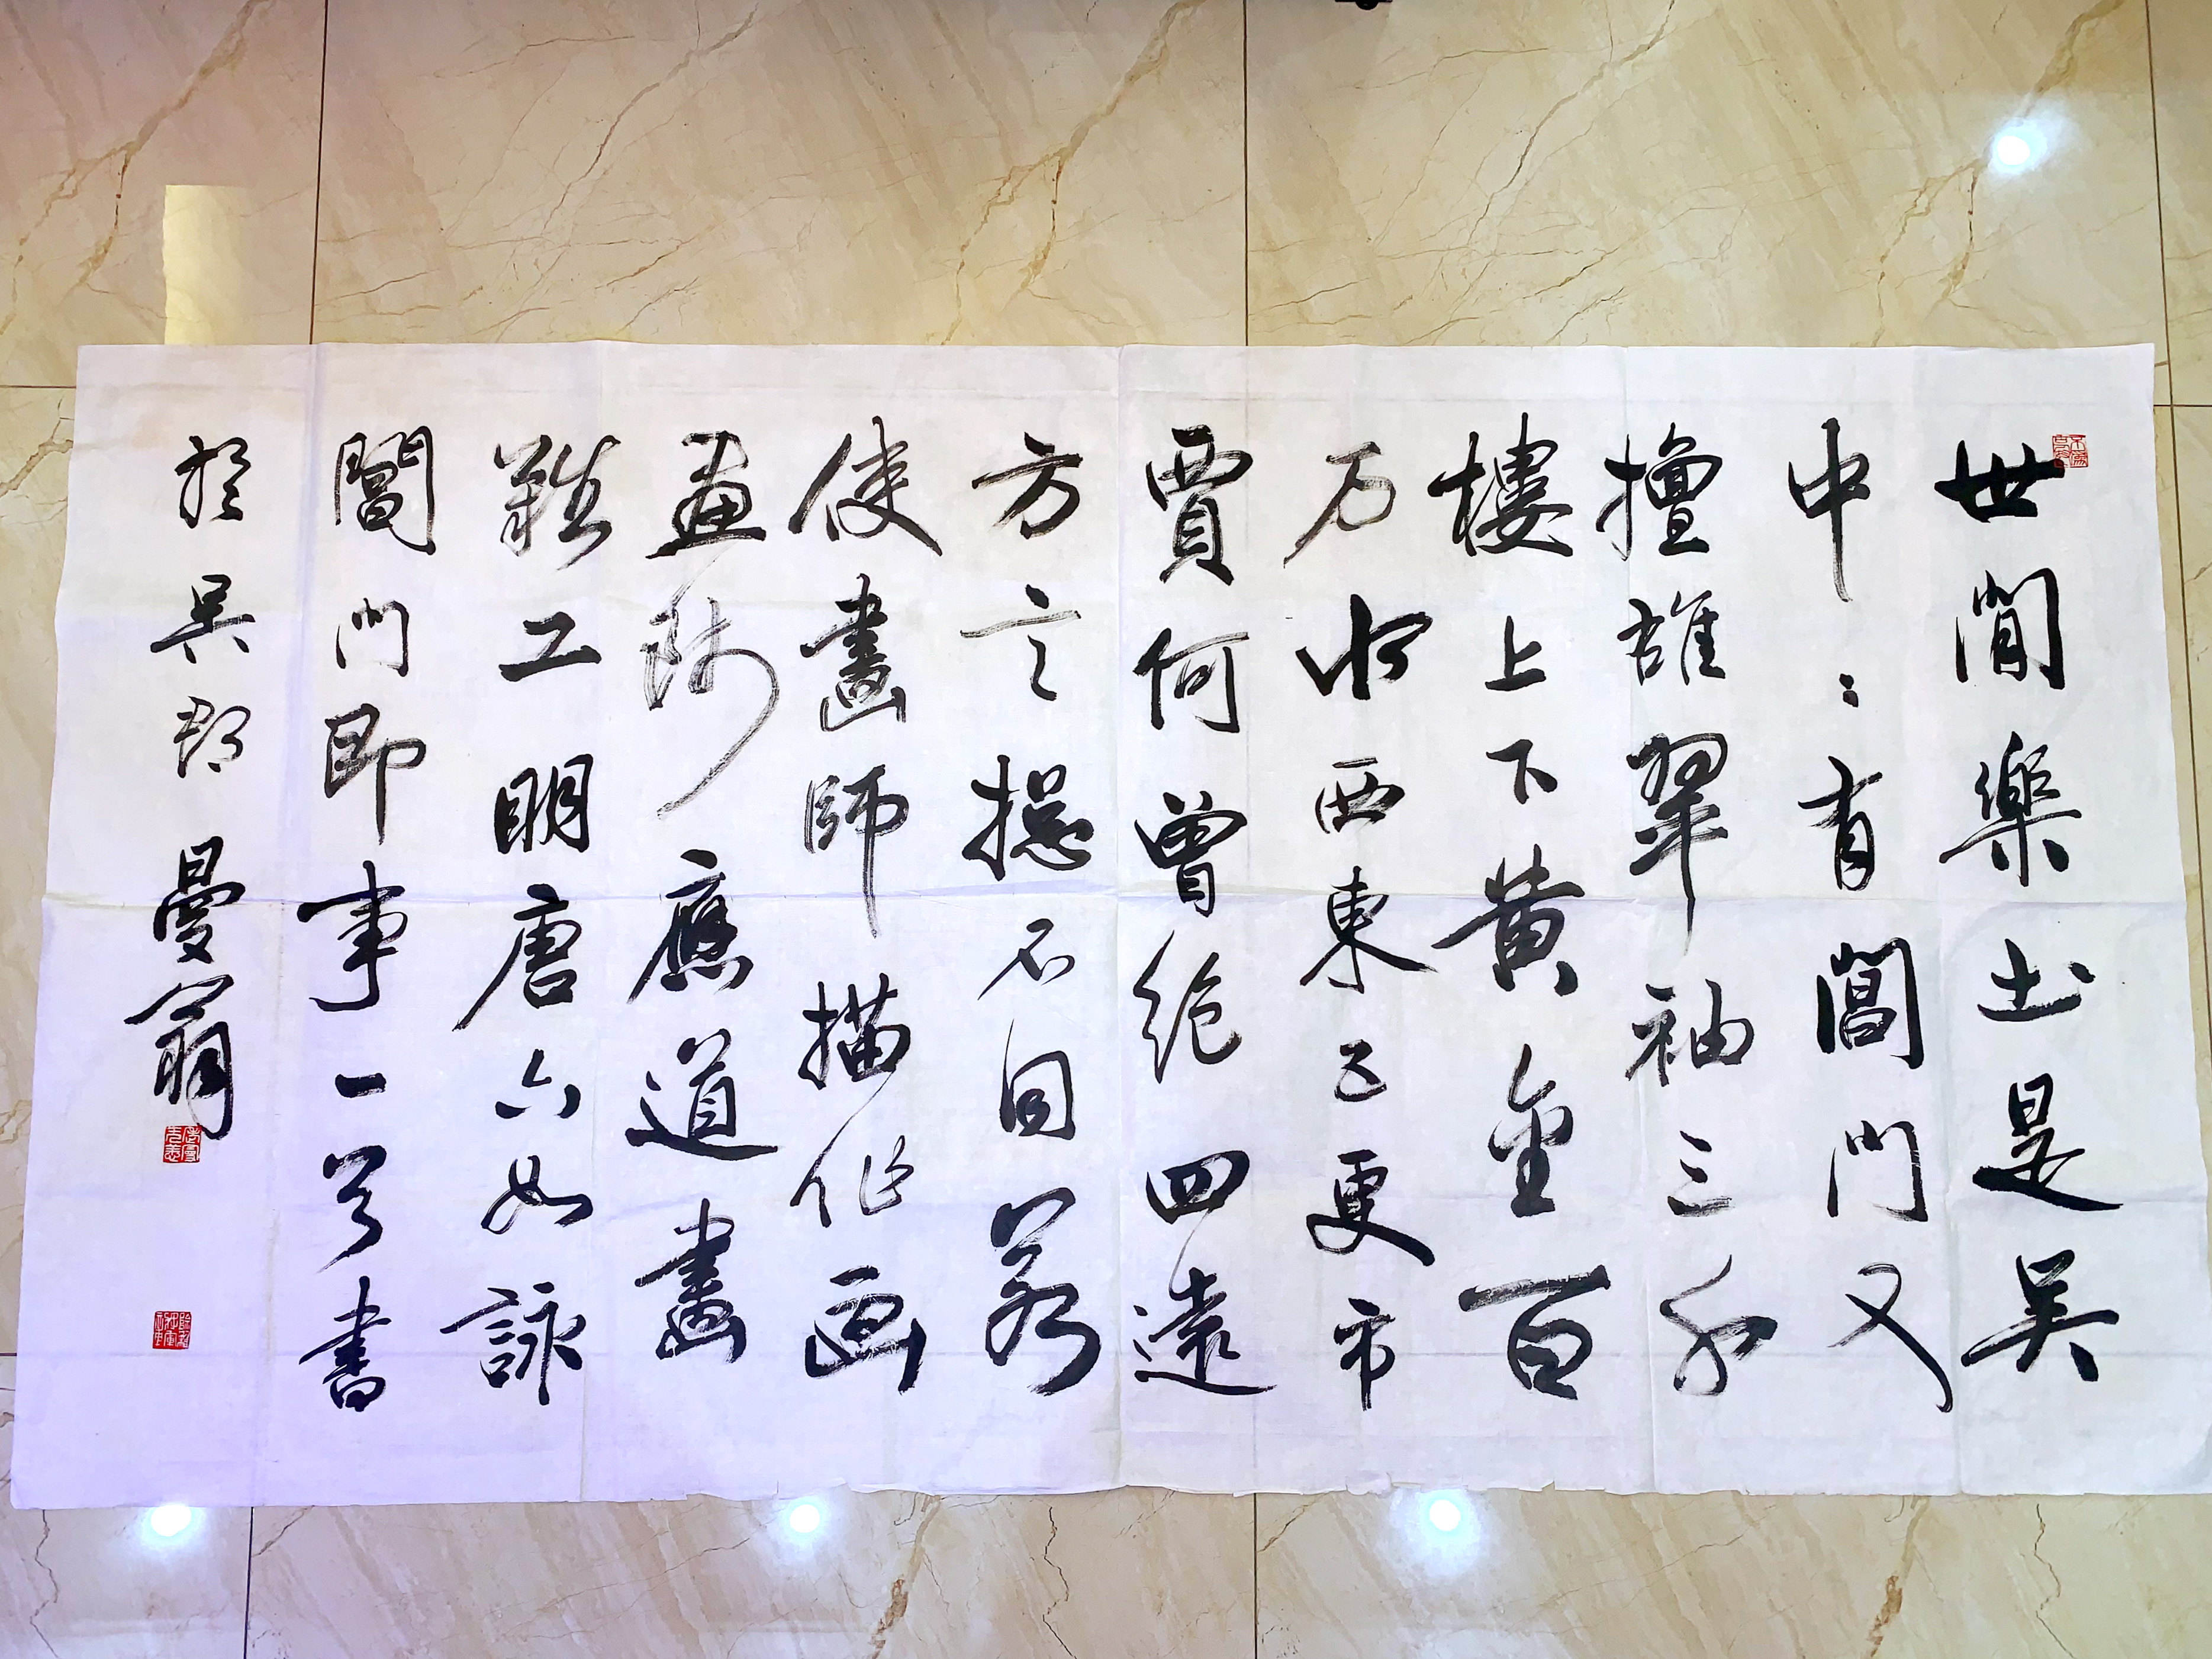 世間樂土是吳
中〻有閶門又
擅雄翠袖三千
樓上下黄金百
万水西東五更市
賈何曾絶四遠
方言捴不同若
使畫師描作画
畫師應道畫
難工明唐六如詠
閶門即事一首書
於吳郡曼翁